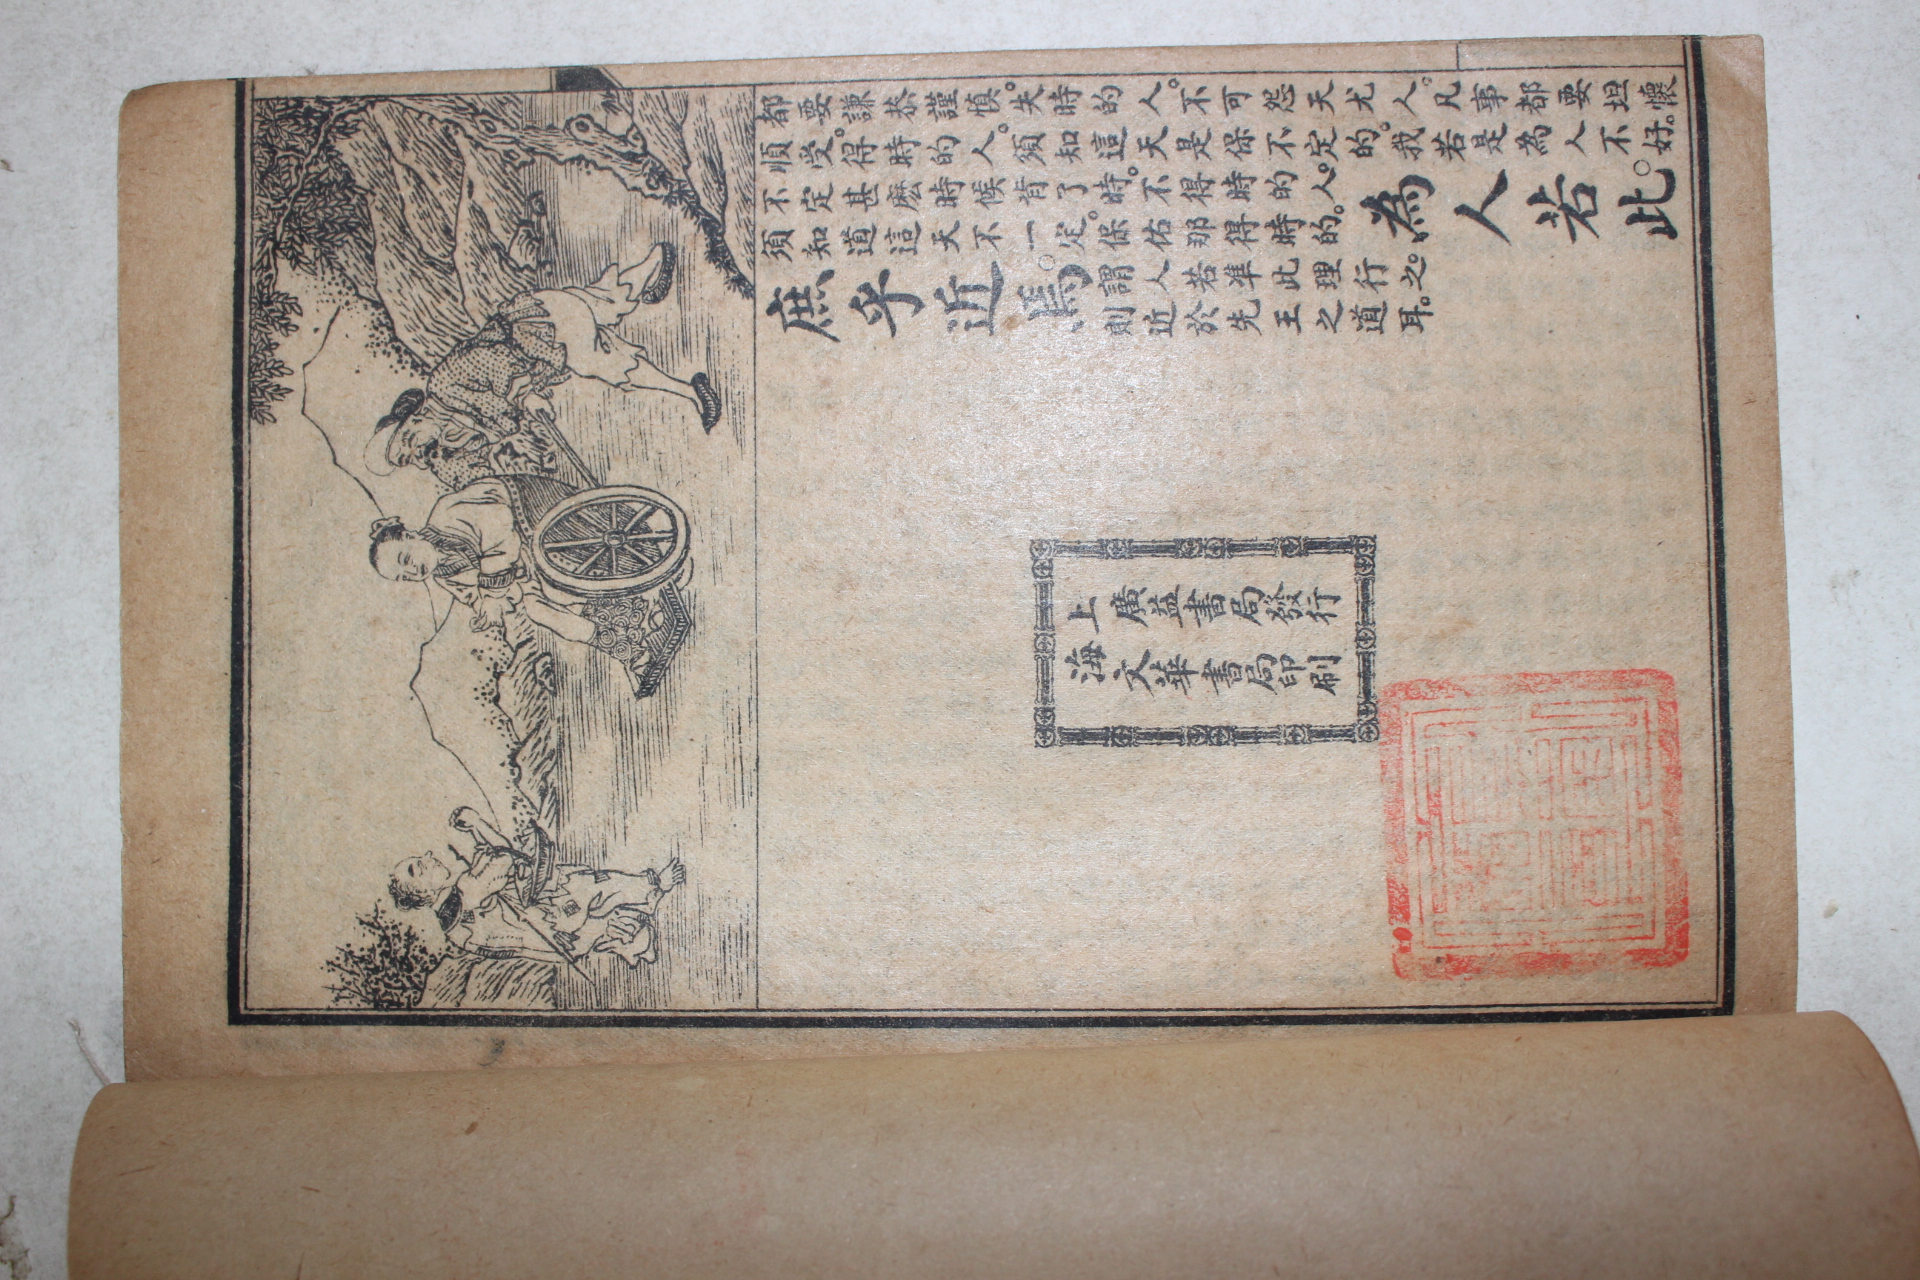 都要謙恭謹慎。失時的人。不可怨天尤人。凡事都要坦懷
順受。得時的人。須知這天是保不定的。我若是為人不好。
不定甚麼時候背了時。不得時的人。
須知道這天不一定。保佑那得時的。
為人若此。
庶乎近焉。
謂人若準此理行之。
則近於先王之道耳。
上海
廣益書局發行
文華書局印刷